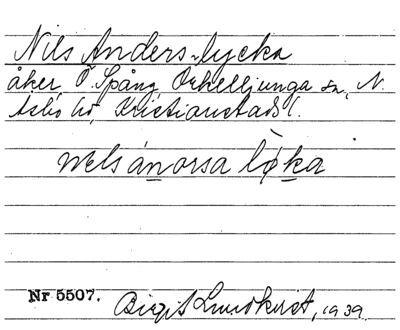 Nils Anders-lycka
åker, Ö. Spång, Örkelljunga sn, N.
Åsbo hd, Kristianstads l.
nels ánorsa lø̀ka
Nr 5507.
Birgit Lundkvist, 1939